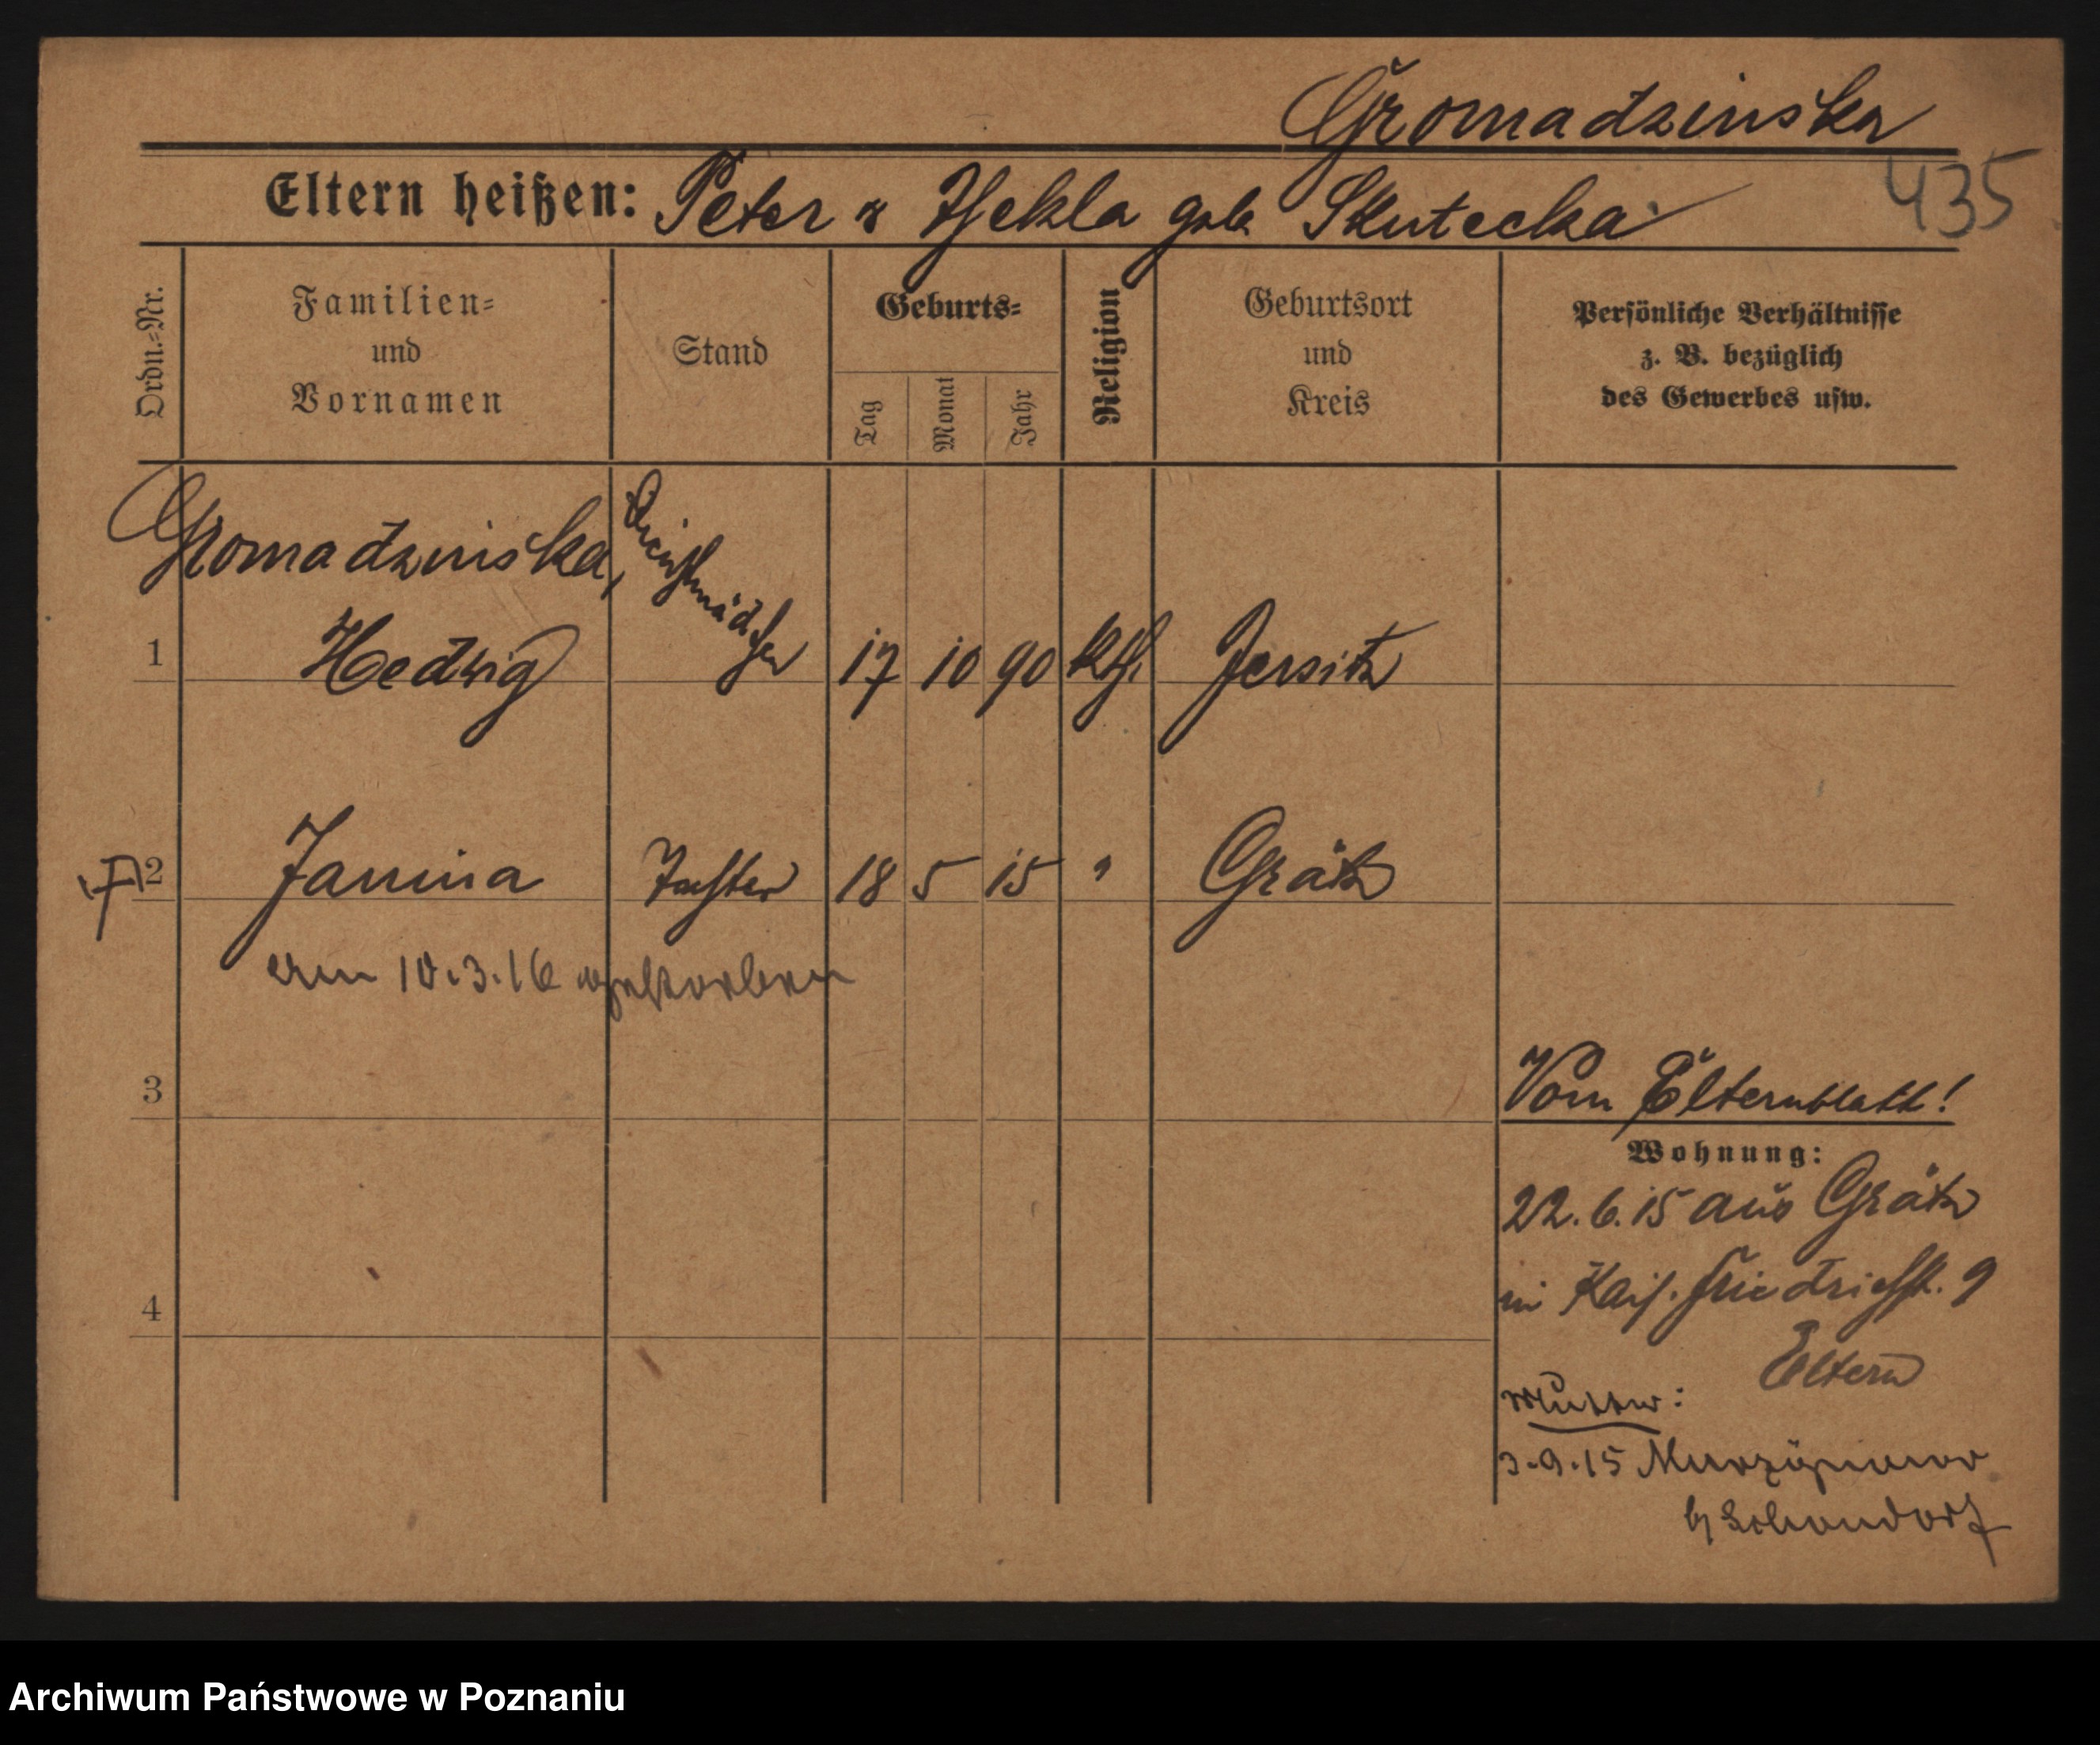 Gromadzinska
435
Eltern heißen: Peter & Thekla geb. Skutecka
Ordn.=Nr.
Familien=
und
Vornamen
Stand
Geburts=
Tag
Monat
Jahr
Religion
Geburtsort
und
Kreis
Persönliche Verhältnisse
z. B. bezüglich
des Gewerbes usw.
Gromadzinska,
1 Hedwig Dienstmädchen 17 10 90 kth Jersitz
2 Janina Tochter 18 5 15 " Grätz
am 10.3.16 gestorben
3
Vom Elternblatt!
Wohnung:
22.6.15 aus Grätz
in Kais. Friedrichst. 9
4
Eltern
Mutter:
3.9.15
Archiwum Państwowe w Poznaniu